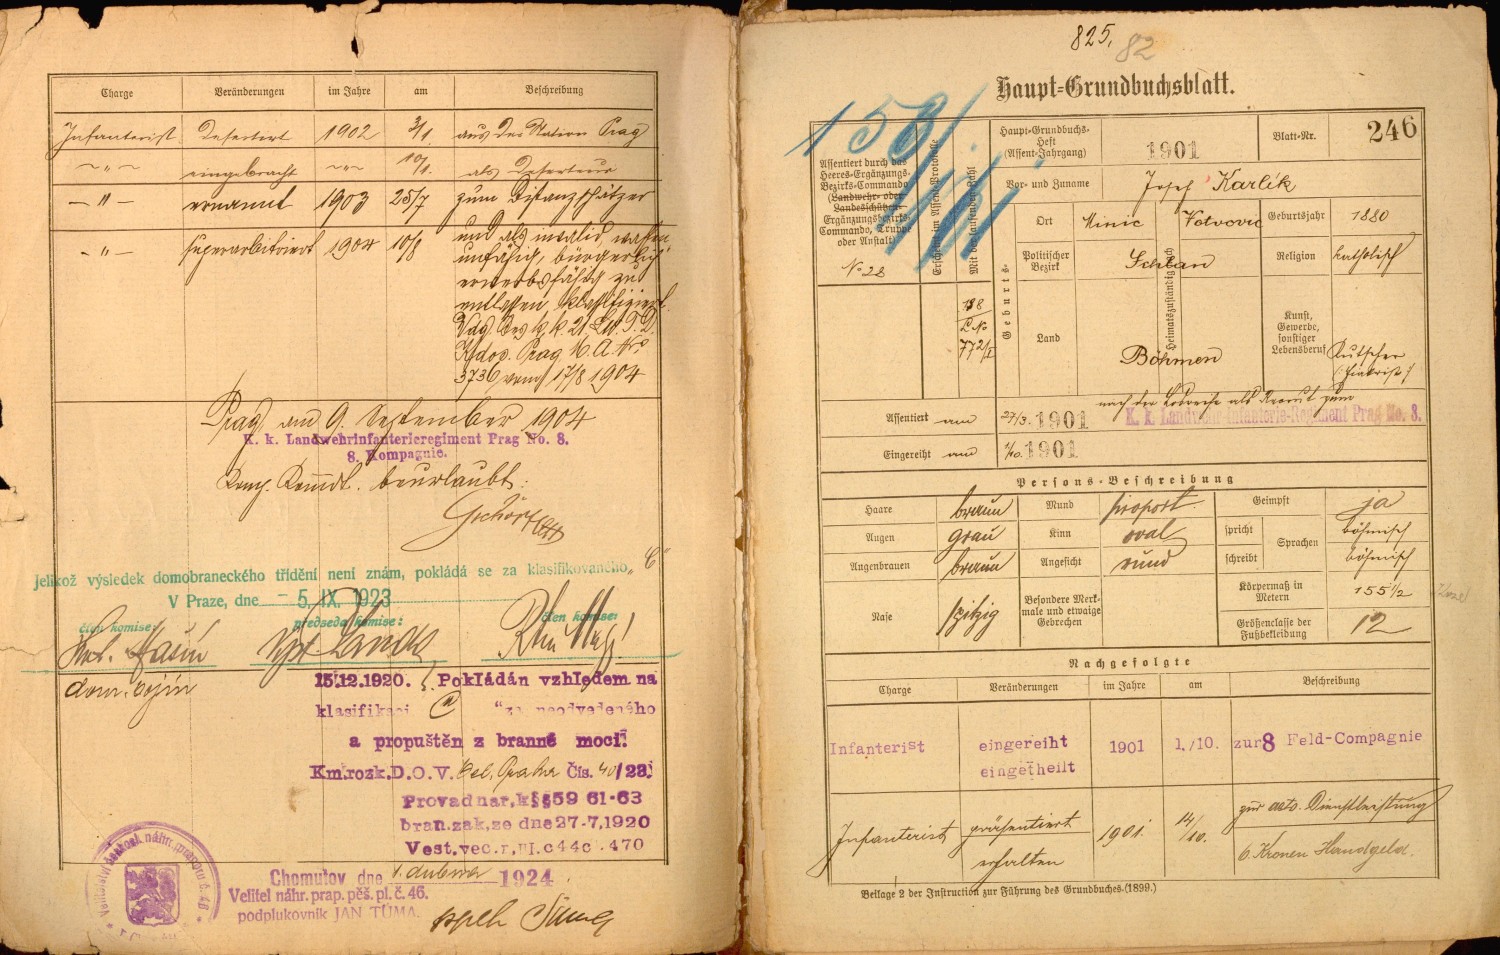 Charge Veränderungen im Jahre am Beschreibung
Infanterist Desertert 1902 3/1. aus der Station Prag
~ " ~ eingebracht ~ " ~ 10/1. als Deserteur
— " — ernannt 1903 25/7 zum Distanzschätzer
— " — superarbitriert 1904 10/8 und als invalid, waffen
unfähig, bürgerlich
erwerbsfähig zu
entlassen klassifiziert.
k. k. 21. L. I. T. D.
Kdos. Prag M. A. No
3736 vom 17/8 1904
Prag, am 9. September 1904
K. k. Landwehrinfanterieregiment Prag No. 8.
8. Kompagnie.
Komp. Komdt. beurlaubt:
jelikož výsledek domobraneckého třídění není znám, pokládá se za klasifikovaného „C"
V Praze, dne 5. IX. 1923
člen komise: předseda komise: člen komise:
15.12.1920. Pokládán vzhledem na
klasifikaci C "za neodvedeného
a propuštěn z branné moci.
Km.rozk.D.O.V. Praha Čís. 40/23.
Provad nar. k §§ 59 61-63
bran.zak.ze dne 27-7.1920
Vest.vec.r.III.c44čl.470
Chomutov dne 1. dubna 1924
Velitel náhr. prap. pěš. pl. č. 46.
podplukovník JAN TŮMA.
825.
82
Haupt=Grundbuchsblatt.
158/
Assentiert durch das
Heeres-Ergänzungs-
Bezirks-Commando
(Landwehr- oder
Landesschützen-
Ergänzungsbezirks-
Commando, Truppe
oder Anstalt)
No 28
Erscheint im Assent-Protokolle
Mit der laufenden Zahl
188
L. No
772/I
Haupt-Grundbuchs-
Heft
(Assent-Jahrgang)
1901
Blatt-Nr.
246
Vor- und Zuname Josef Karlík
Geburts-
Ort Minic
Heimatszuständig nach
Votvovic
Geburtsjahr 1880
Politischer
Bezirk
Schlan
Religion katholisch
Land
Böhmen
Kunst,
Gewerbe,
sonstiger
Lebensberuf
Kutscher
Assentiert am 27/3. 1901 nach der Losreihe als Recrut zum
K. k. Landwehr-Infanterie-Regiment Prag No. 8.
Eingereiht am 1/10. 1901
Persons-Beschreibung
Haare braun Mund proport. Geimpft ja
Augen grau Kinn oval spricht Sprachen böhmisch
Augenbrauen braun Angesicht rund schreibt böhmisch
Nase spitzig
Besondere Merk-
male und etwaige
Gebrechen
Körpermaß in
Metern
155 1/2
Größenclasse der
Fußbekleidung
12
Nachgefolgte
Charge Veränderungen im Jahre am Beschreibung
Infanterist eingereiht 1901 1./10. zur 8 Feld-Compagnie
eingetheilt
Infanterist präsentiert 1901. 14/10. zur activ. Dienstleistung
erhalten 6. Kronen Handgeld.
Beilage 2 der Instruction zur Führung des Grundbuches.(1899.)